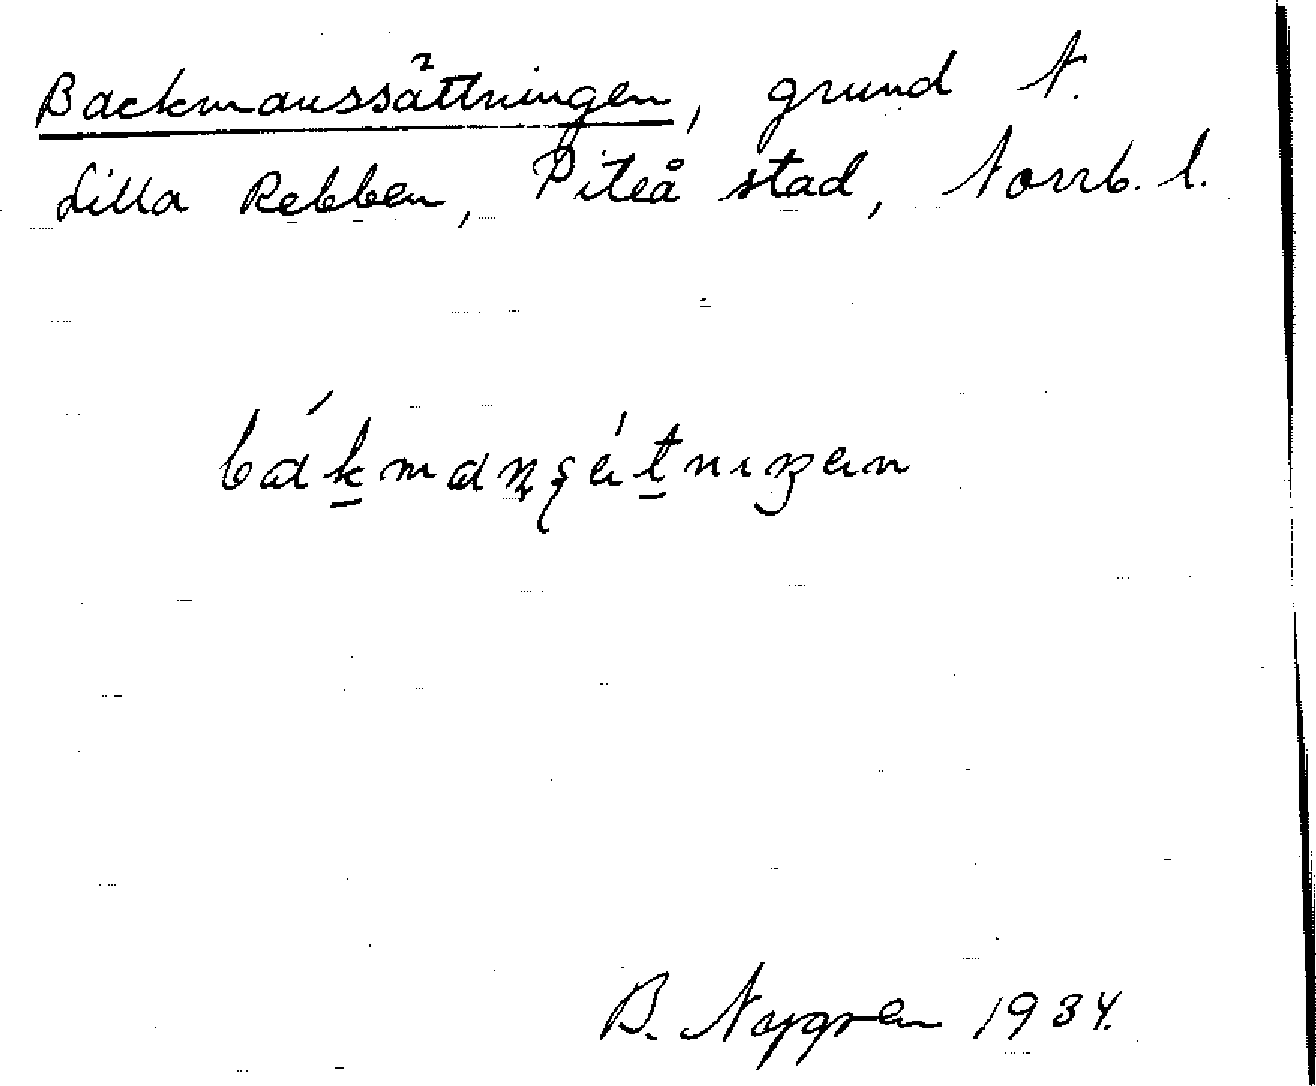 Backmanssättningen, grund N.
Lilla Rebben, Piteå stad, Norrb. l.
B. Nygren 1934.